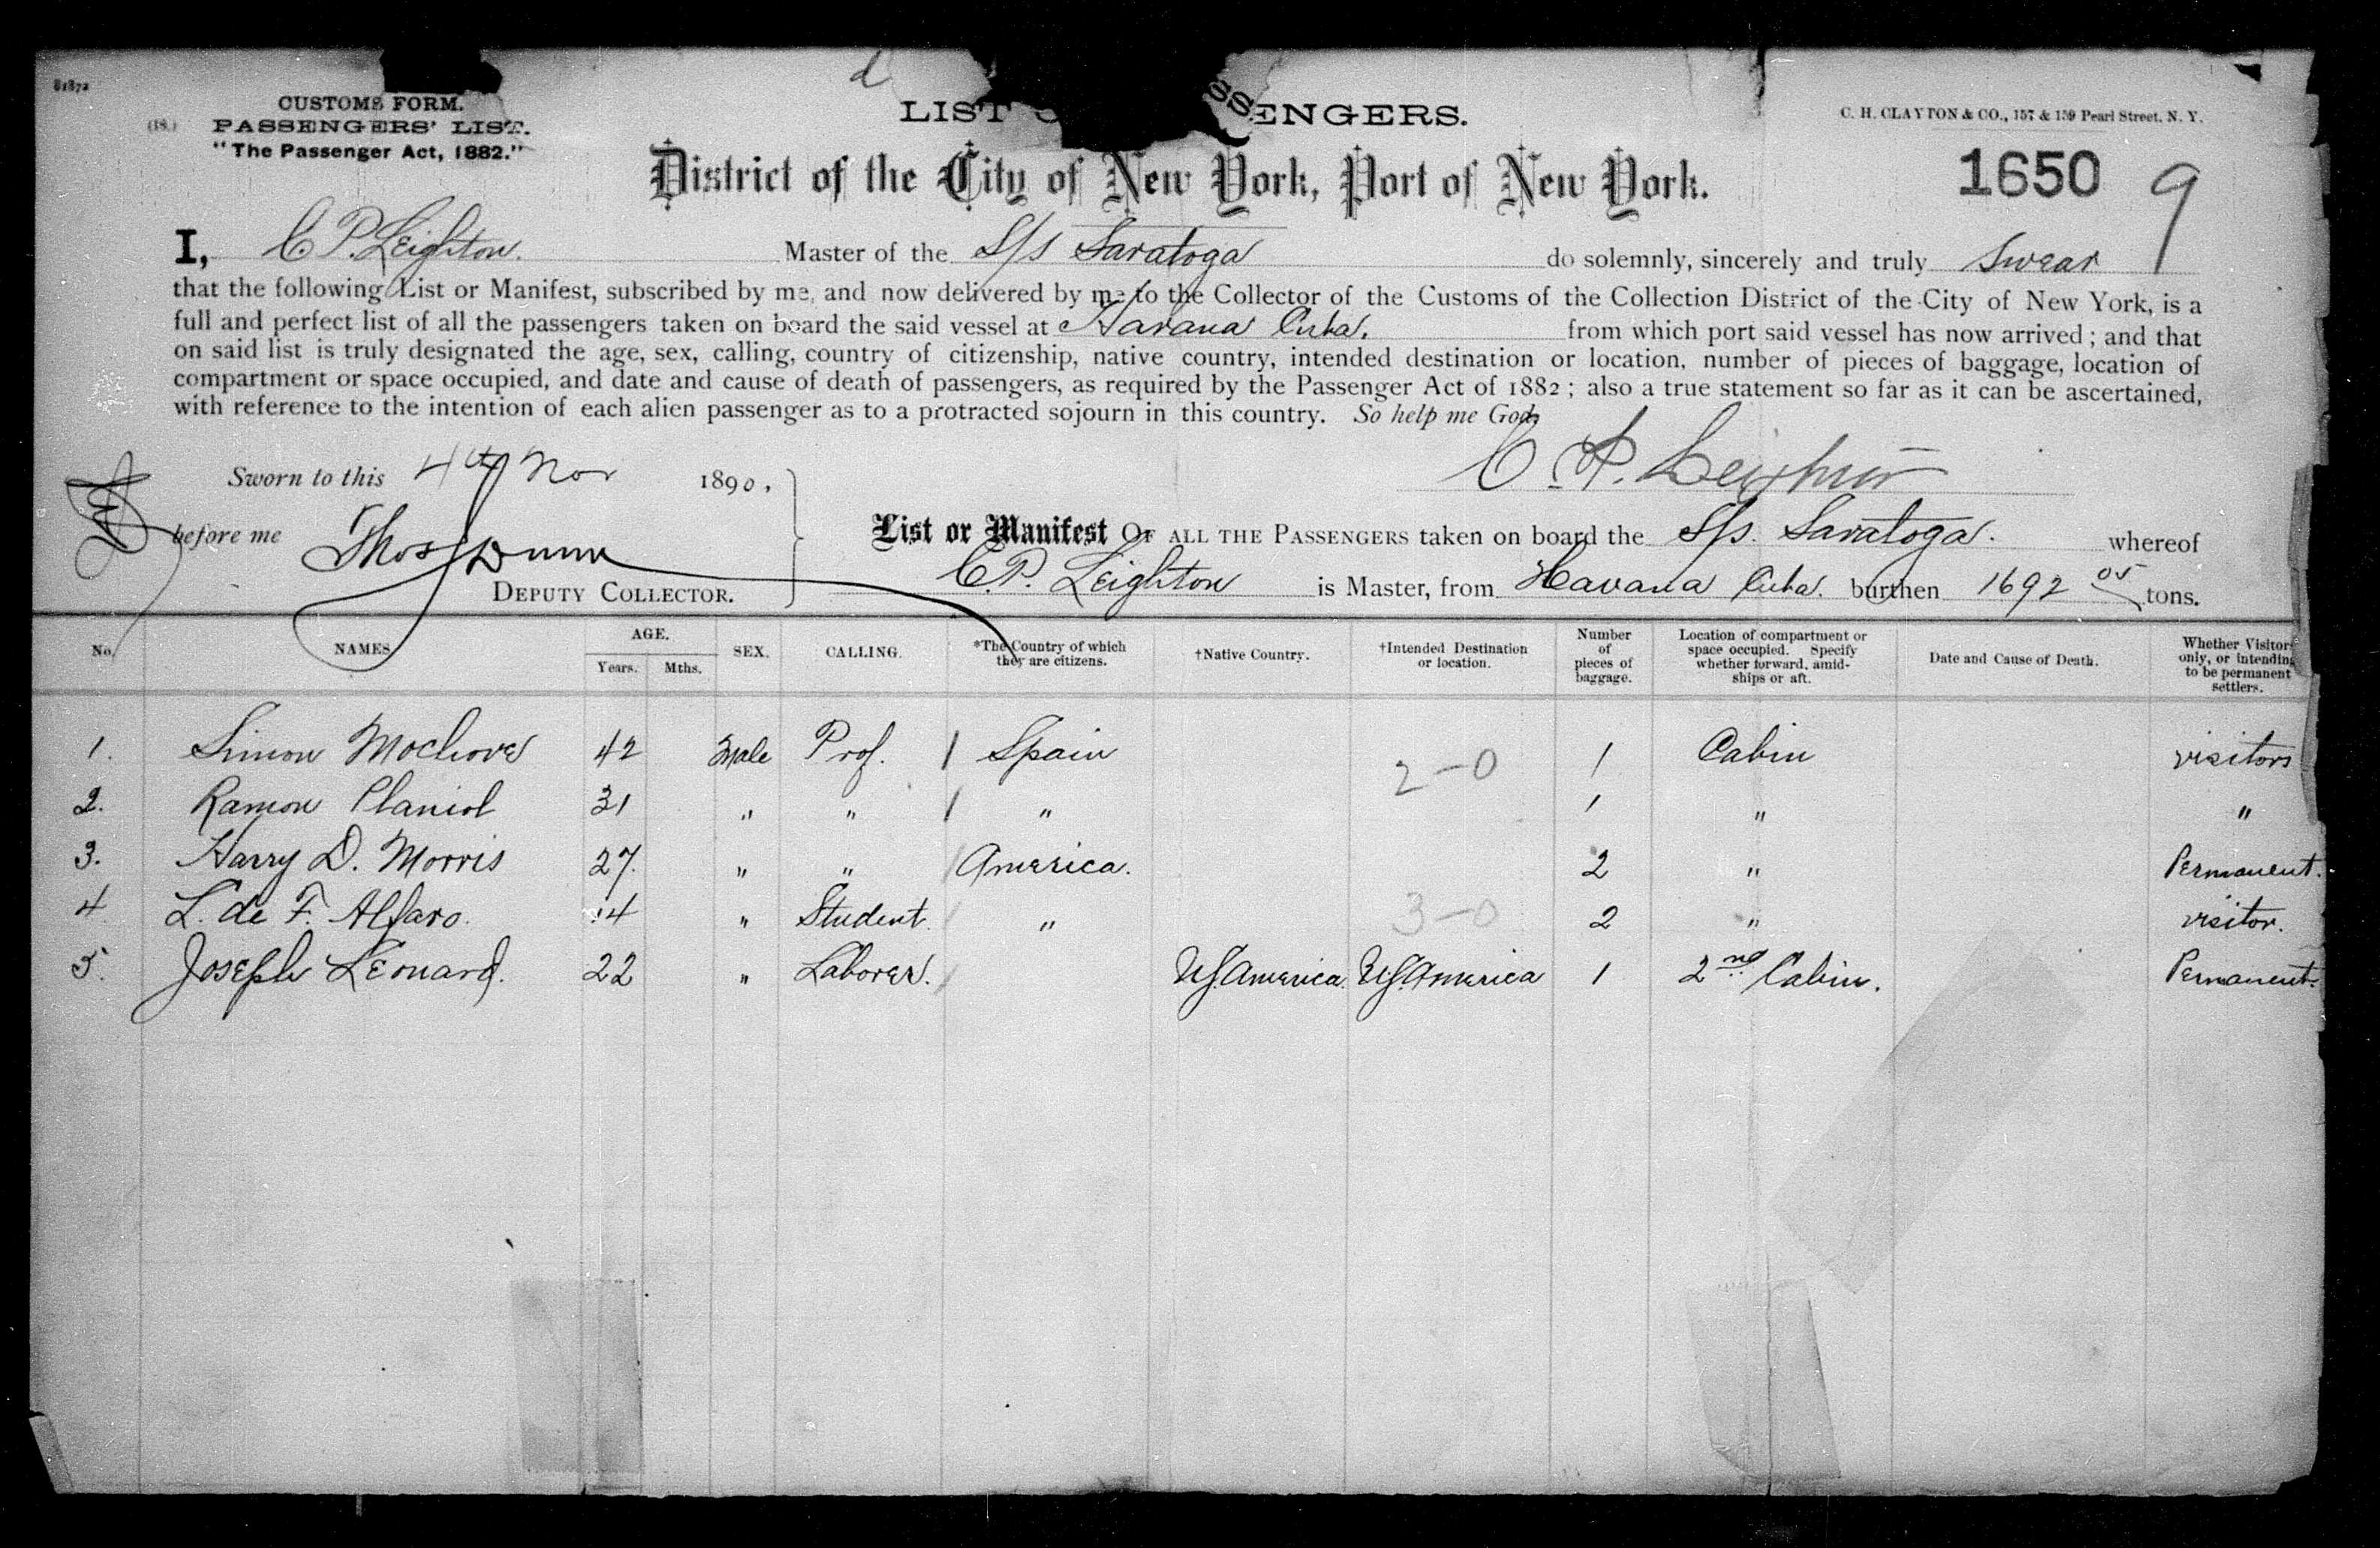 81872
d
CUSTOMS FORM.
(18.) PASSENGERS' LIST.
"The Passenger Act, 1882."
LIST O SSENGERS.
C. H. CLAYTON & CO., 157 & 159 Pearl Street, N. Y.
District of the City of New York, Port of New York.
1650 9
I, C. P. Leighton. Master of the S/s Saratoga do solemnly, sincerely and truly swear
that the following List or Manifest, subscribed by me, and now delivered by me to the Collector of the Customs of the Collection District of the City of New York, is a
full and perfect list of all the passengers taken on board the said vessel at Havana Cuba. from which port said vessel has now arrived; and that
on said list is truly designated the age, sex, calling, country of citizenship, native country, intended destination or location, number of pieces of baggage, location of
compartment or space occupied, and date and cause of death of passengers, as required by the Passenger Act of 1882; also a true statement so far as it can be ascertained,
with reference to the intention of each alien passenger as to a protracted sojourn in this country. So help me God.
C. P. Leighton
Sworn to this 4th Nov 1890,
before me Thos Dunn
DEPUTY COLLECTOR.
List or Manifest OF ALL THE PASSENGERS taken on board the S/s. Saratoga. whereof
C. P. Leighton is Master, from Havana Cuba. burthen 1692 05 tons.
No. NAMES. AGE. Years. Mths. SEX. CALLING. *The Country of which they are citizens. †Native Country. †Intended Destination or location. Number of pieces of baggage. Location of compartment or space occupied. Specify whether forward, amidships or aft. Date and Cause of Death. Whether Visitors only, or intending to be permanent settlers.
1. Simon Mochove 42 Male Prof. / Spain 2-0 1 Cabin visitors
2. Ramon Planiol 31 " " / " 1 " "
3. Harry D. Morris 27. " " / America. 2 " Permanent.
4 L. de F. Alfaro. 14 " Student. / " 3-0 2 " visitor.
5. Joseph Leonard. 22 " Laborer. / U.S. America. U.S. America 1 2nd Cabin. Permanent.